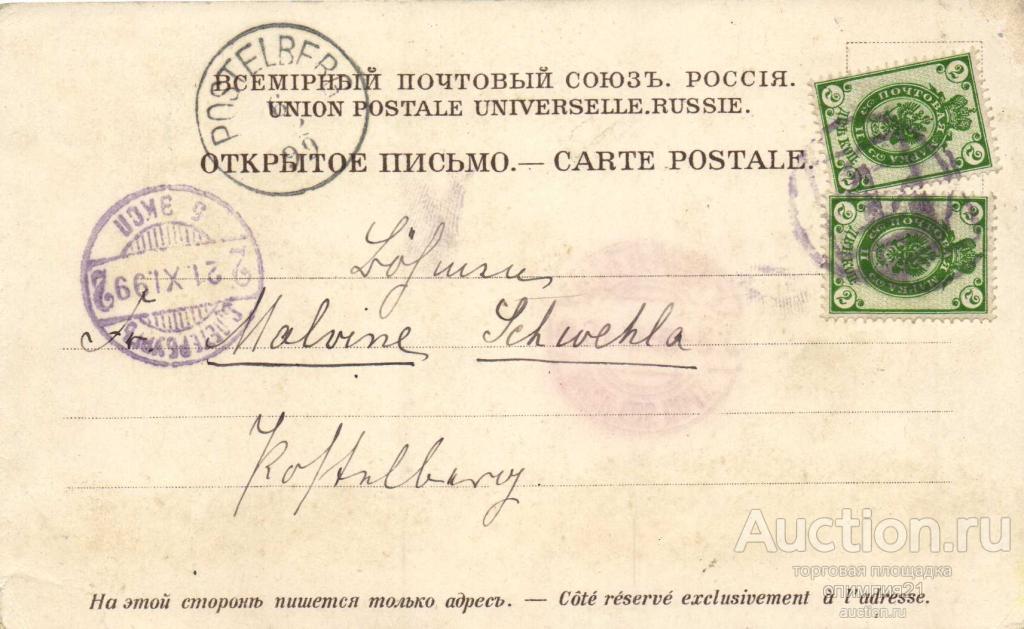 POSTELBERG
99
ВСЕМІРНЫЙ ПОЧТОВЫЙ СОЮЗЪ. РОССІЯ.
UNION POSTALE UNIVERSELLE.RUSSIE.
ОТКРЫТОЕ ПИСЬМО.— CARTE POSTALE.
2 ПОЧТОВАЯ МАРКА 2
2 ПОЧТОВАЯ МАРКА 2
5 ЭКСП
2 21.XI.99 2
С.ПЕТЕРБУРГЪ
Böhmen
Fr. Malvine Schwehla
Postelberg.
Auction.ru
торговая площадка
олимпия21
auction.ru
На этой сторонѣ пишется только адресъ. — Côté réservé exclusivement à l'adresse.